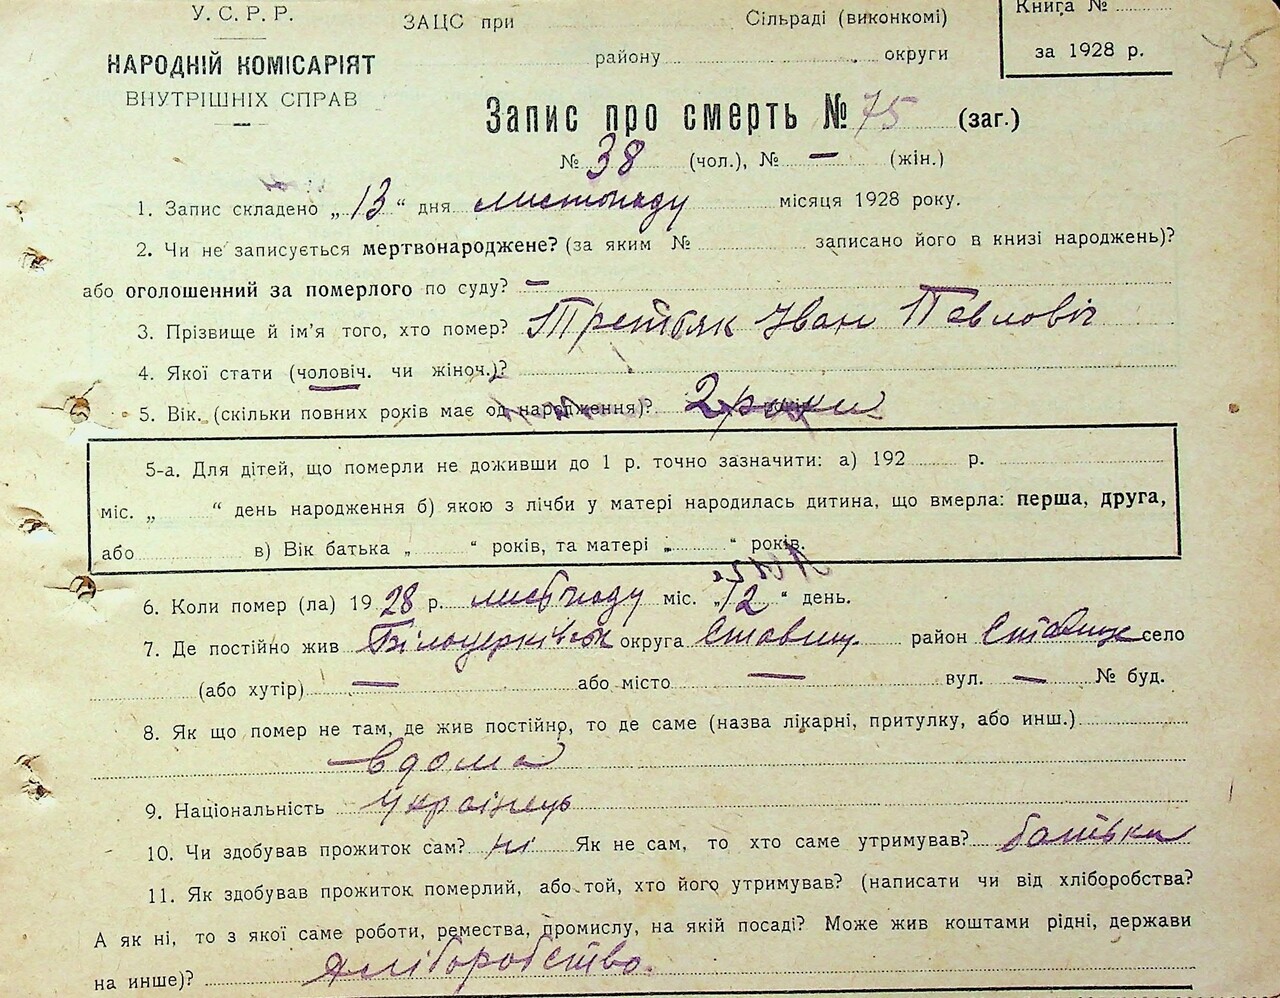 У.С.Р.Р.
НАРОДНІЙ КОМІСАРІЯТ
ВНУТРІШНІХ СПРАВ
ЗАЦС при Сільраді (виконкомі)
району округи
Книга №
за 1928 р.
75
Запис про смерть № 75 (заг.)
№ 38 (чол.), № — (жін.)
1. Запис складено „ 13 “ дня листопаду місяця 1928 року.
2. Чи не записується мертвонароджене? (за яким № записано його в книзі народжень)?
або оголошенний за померлого по суду? —
3. Прізвище й ім'я того, хто помер? Третяк Іван Павловіч
4. Якої стати (чоловіч. чи жіноч.)?
5. Вік. (скільки повних років має од народження)? 2 роки
5-а. Для дітей, що померли не доживши до 1 р. точно зазначити: а) 192 р.
міс. „ “ день народження б) якою з лічби у матері народилась дитина, що вмерла: перша, друга,
або в) Вік батька „ “ років, та матері „ “ років.
6. Коли помер (ла) 19 28 р. листопаду міс. „ 12 “ день.
7. Де постійно жив Білоцерківськ округа Ставищ район Ставище село
(або хутір) — або місто — вул. — № буд.
8. Як що помер не там, де жив постійно, то де саме (назва лікарні, притулку, або инш.)
вдома
9. Національність Українець
10. Чи здобував прожиток сам? ні Як не сам, то хто саме утримував? батьки
11. Як здобував прожиток померлий, або той, хто його утримував? (написати чи від хліборобства?
А як ні, то з якої саме роботи, ремества, промислу, на якій посаді? Може жив коштами рідні, держави
на инше)? Хліборобство.